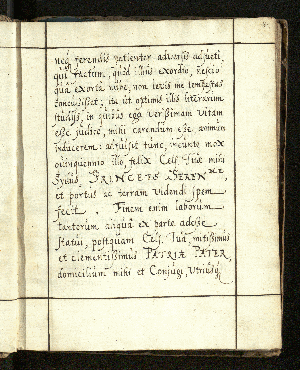 neq; ferendis patienter adversis assueti
qui factum, quod illius exordio, nescio
qua exorta nube, non levis me tempestas
concussisset, ita ut optimis illis literarum
studijs, in quibus ego verissimam vitam
esse judico, mihi carendum esse, animum
inducerem: affulsit tunc, ineunte mox
quinquennio illo, felix Cels. Tuæ mihi
Sydus, PRINCEPS SERENME
et portus ac terram videndi spem
fecit. Finem enim laborum
tantorum aliqua ex parte adesse
statui, postquam Cels. Tua, mitissimus
et clementissimus PATRIÆ PATER,
domicilium mihi et Conjugi, utriusq;